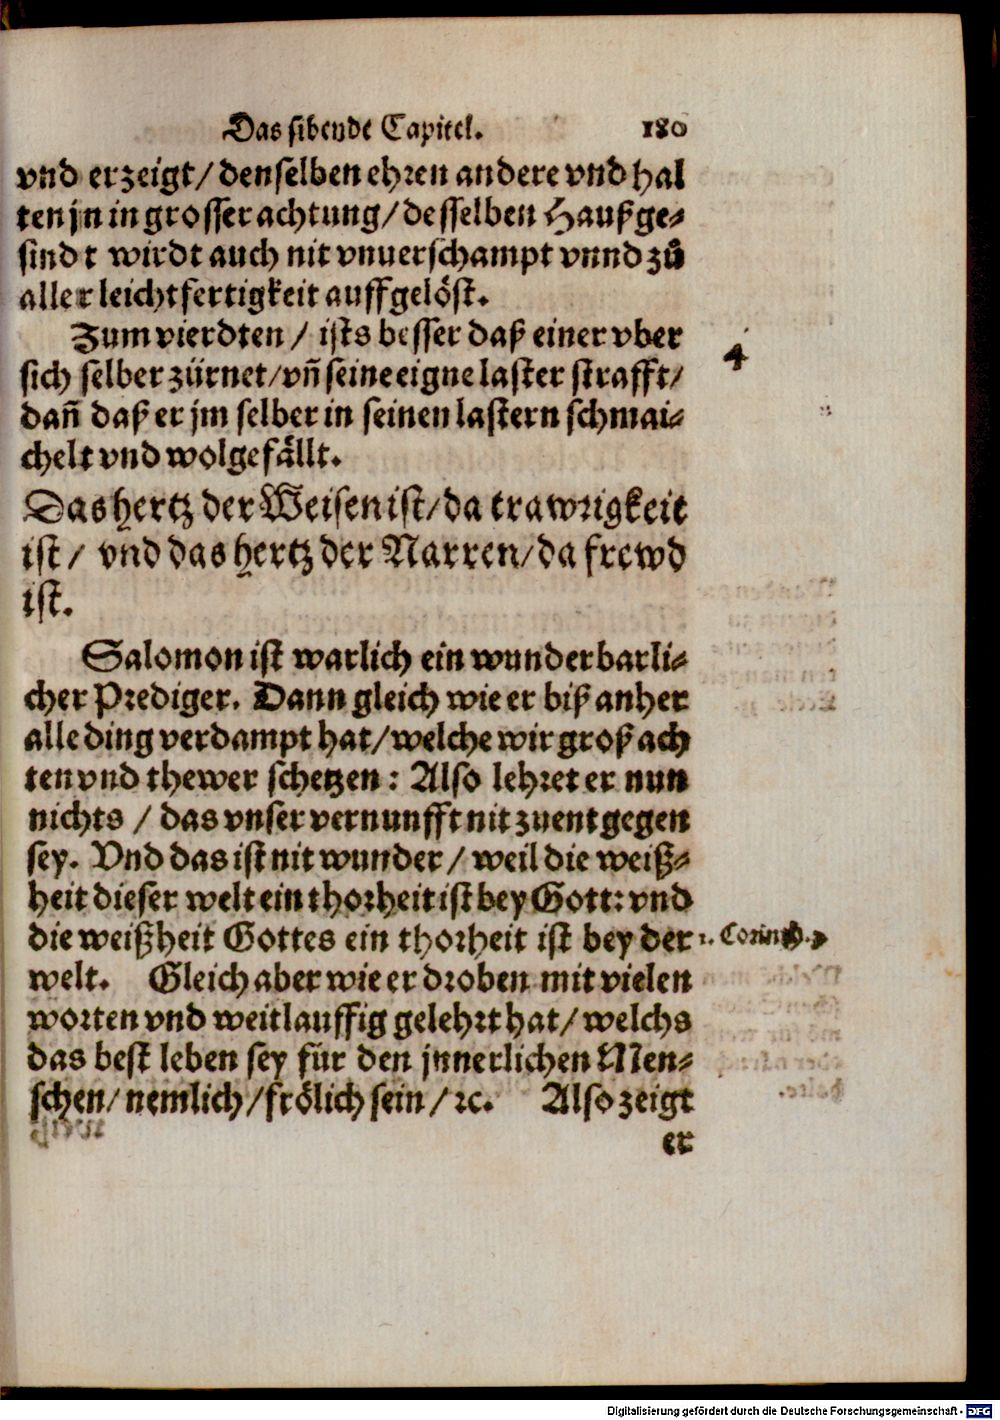 Das sibende Capitel. 180
vnd erzeigt/ denselben ehren andere vnd hal
ten jn in grosser achtung/ desselben Haußge-
sindt wirdt auch nit vnuerschampt vnnd zů
aller leichtfertigkeit auffgelöst.
Zum vierdten/ ists besser daß einer vber
sich selber zürnet/ vñ seine eigne laster strafft/
dañ daß er jm selber in seinen lastern schmai-
chelt vnd wolgefällt.
4
Das hertz der Weisen ist/ da trawrigkeit
ist/ vnd das hertz der Narren/ da frewd
ist.
Salomon ist warlich ein wunderbarli-
cher Prediger. Dann gleich wie er biß anher
alle ding verdampt hat/ welche wir groß ach
ten vnd thewer schetzen: Also lehret er nun
nichts/ das vnser vernunfft nit zuentgegen
sey. Vnd das ist nit wunder/ weil die weiß-
heit dieser welt ein thorheit ist bey Gott: vnd
die weißheit Gottes ein thorheit ist bey der
welt. Gleich aber wie er droben mit vielen
worten vnd weitlauffig gelehrt hat/ welchs
das best leben sey für den jnnerlichen Men-
schen/ nemlich/ frölich sein/ ꝛc. Also zeigt
er
Digitalisierung gefördert durch die Deutsche Forschungsgemeinschaft - DFG